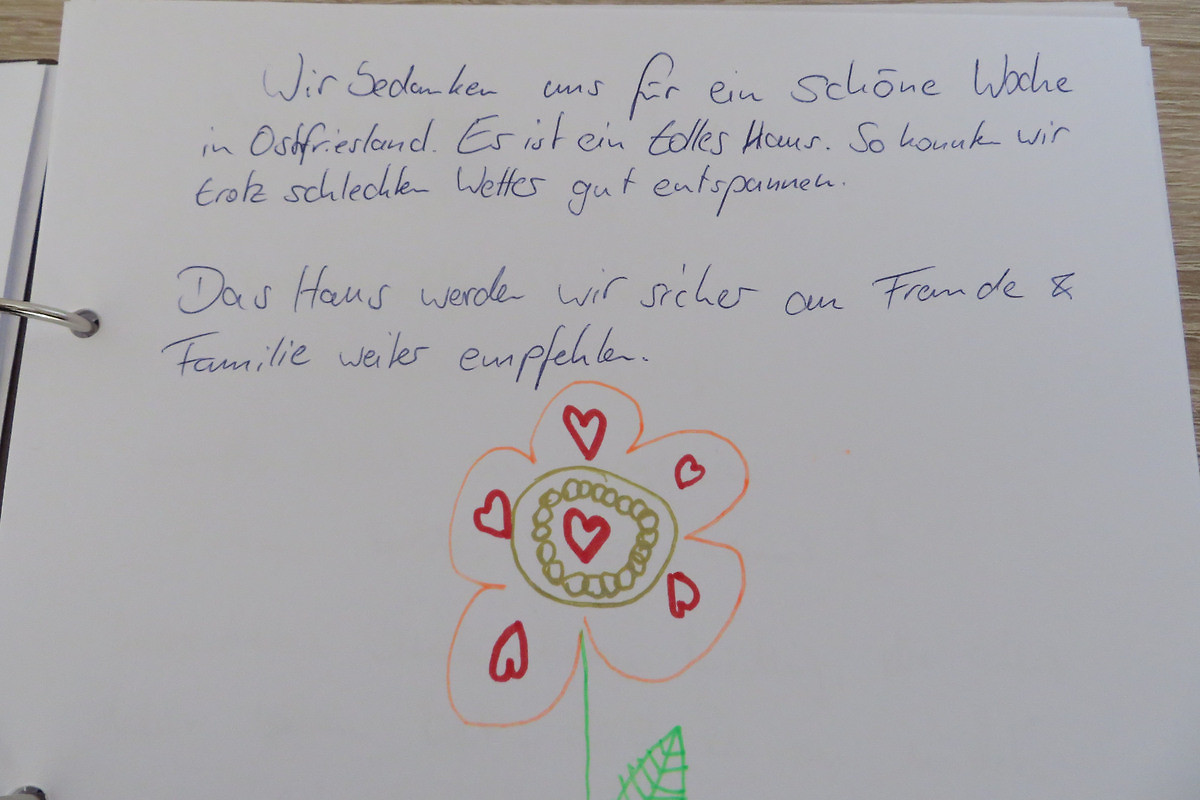 Wir bedanken uns für ein schöne Woche
in Ostfriesland. Es ist ein tolles Haus. So konnten wir
trotz schlechten Wetter gut entspannen.
Das Haus werden wir sicher an Freunde &
Familie weiter empfehlen.